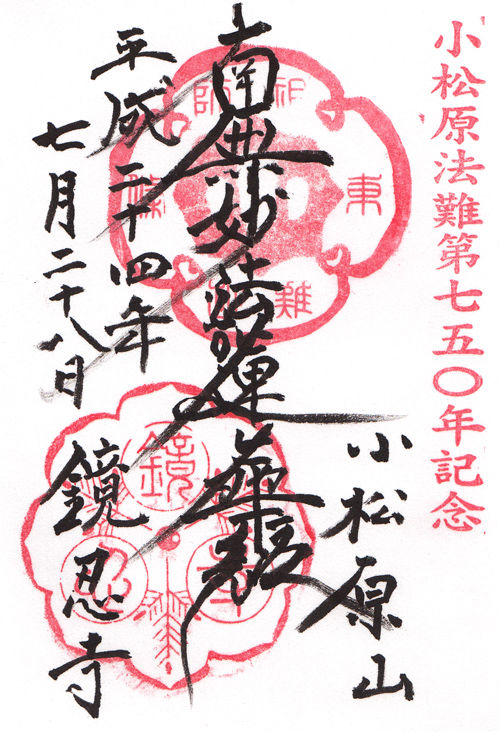 小松原法難第七五〇年記念
南無妙法蓮華経
平成二十四年
七月二十八日
小松原山
鏡忍寺
祖師
東
難
鏡
忍
寺